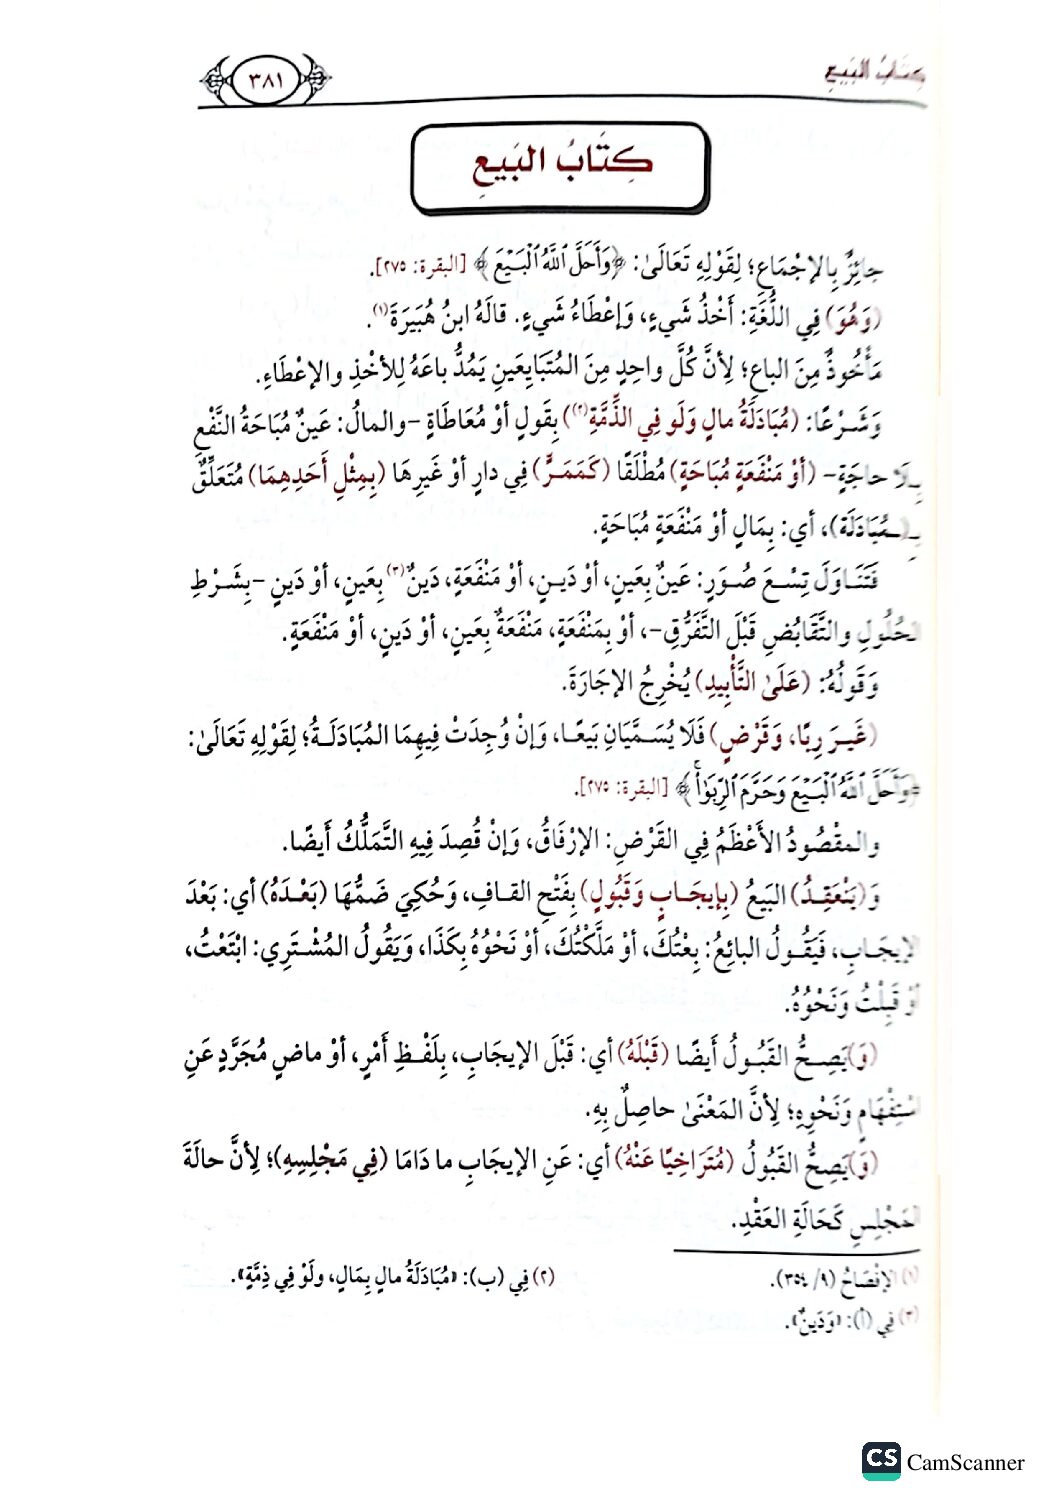 كِتَابُ البَيعِ
٣٨١
كِتَابُ البَيعِ
جائِزٌ بِالإِجْمَاعِ؛ لِقَوْلِهِ تَعَالَىٰ: ﴿وَأَحَلَّ ٱللَّهُ ٱلْبَيْعَ﴾ [البقرة: ٢٧٥].
(وَهُوَ) فِي اللُّغَةِ: أَخْذُ شَيءٍ، وَإِعْطَاءُ شَيءٍ. قالَهُ ابنُ هُبَيرَةَ(١).
مَأْخُوذٌ مِنَ الباعِ؛ لِأَنَّ كُلَّ واحِدٍ مِنَ المُتَبَايِعَينِ يَمُدُّ باعَهُ لِلأَخْذِ والإِعْطَاءِ.
وَشَرْعًا: (مُبَادَلَةُ مالٍ وَلَو فِي الذِّمَّةِ(٢)) بِقَولٍ أَوْ مُعَاطَاةٍ -والمالُ: عَينٌ مُبَاحَةُ النَّفْعِ
بِلَا حاجَةٍ- (أَوْ مَنْفَعَةٍ مُبَاحَةٍ) مُطْلَقًا (كَمَمَرٍّ) فِي دارٍ أَوْ غَيرِهَا (بِمِثْلِ أَحَدِهِمَا) مُتَعَلِّقٌ
بِـ(ـمُبَادَلَة)، أي: بِمَالٍ أَوْ مَنْفَعَةٍ مُبَاحَةٍ.
فَتَنَاوَلَ تِسْعَ صُوَرٍ: عَينٌ بِعَينٍ، أَوْ دَينٍ، أَوْ مَنْفَعَةٍ، دَينٌ(٣) بِعَينٍ، أَوْ دَينٍ -بِشَرْطِ
الحُلُولِ والتَّقَابُضِ قَبْلَ التَّفَرُّقِ-، أَوْ بِمَنْفَعَةٍ، مَنْفَعَةٌ بِعَينٍ، أَوْ دَينٍ، أَوْ مَنْفَعَةٍ.
وَقَولُهُ: (عَلَىٰ التَّأْبِيدِ) يُخْرِجُ الإِجَارَةَ.
(غَيرَ رِبًا، وَقَرْضٍ) فَلَا يُسَمَّيَانِ بَيعًا، وَإِنْ وُجِدَتْ فِيهِمَا المُبَادَلَةُ؛ لِقَوْلِهِ تَعَالَىٰ:
﴿وَأَحَلَّ ٱللَّهُ ٱلْبَيْعَ وَحَرَّمَ ٱلرِّبَوٰا۟ۚ﴾ [البقرة: ٢٧٥].
والمقْصُودُ الأَعْظَمُ فِي القَرْضِ: الإِرْفَاقُ، وَإِنْ قُصِدَ فِيهِ التَّمَلُّكُ أَيضًا.
وَ(يَنْعَقِدُ) البَيعُ (بِإِيجَابٍ وَقَبُولٍ) بِفَتْحِ القافِ، وَحُكِيَ ضَمُّهَا (بَعْدَهُ) أي: بَعْدَ
الإِيجَابِ، فَيَقُولُ البائِعُ: بِعْتُكَ، أَوْ مَلَّكْتُكَ، أَوْ نَحْوُهُ بِكَذَا، وَيَقُولُ المُشْتَرِي: ابْتَعْتُ،
أَوْ قَبِلْتُ وَنَحْوُهُ.
(وَ)يَصِحُّ القَبُولُ أَيضًا (قَبْلَهُ) أي: قَبْلَ الإِيجَابِ، بِلَفْظِ أَمْرٍ، أَوْ ماضٍ مُجَرَّدٍ عَنِ
اسْتِفْهَامٍ وَنَحْوِهِ؛ لِأَنَّ المَعْنَىٰ حاصِلٌ بِهِ.
(وَ)يَصِحُّ القَبُولُ (مُتَرَاخِيًا عَنْهُ) أي: عَنِ الإِيجَابِ ما دَامَا (فِي مَجْلِسِهِ)؛ لِأَنَّ حالَةَ
المَجْلِسِ كَحَالَةِ العَقْدِ.
(١) الإِفْصَاحُ (٩/ ٣٥٤).
(٢) فِي (ب): «مُبَادَلَةُ مالٍ بِمَالٍ، ولَوْ فِي ذِمَّةٍ».
(٣) فِي (أ): «وَدَينٌ».
CS CamScanner